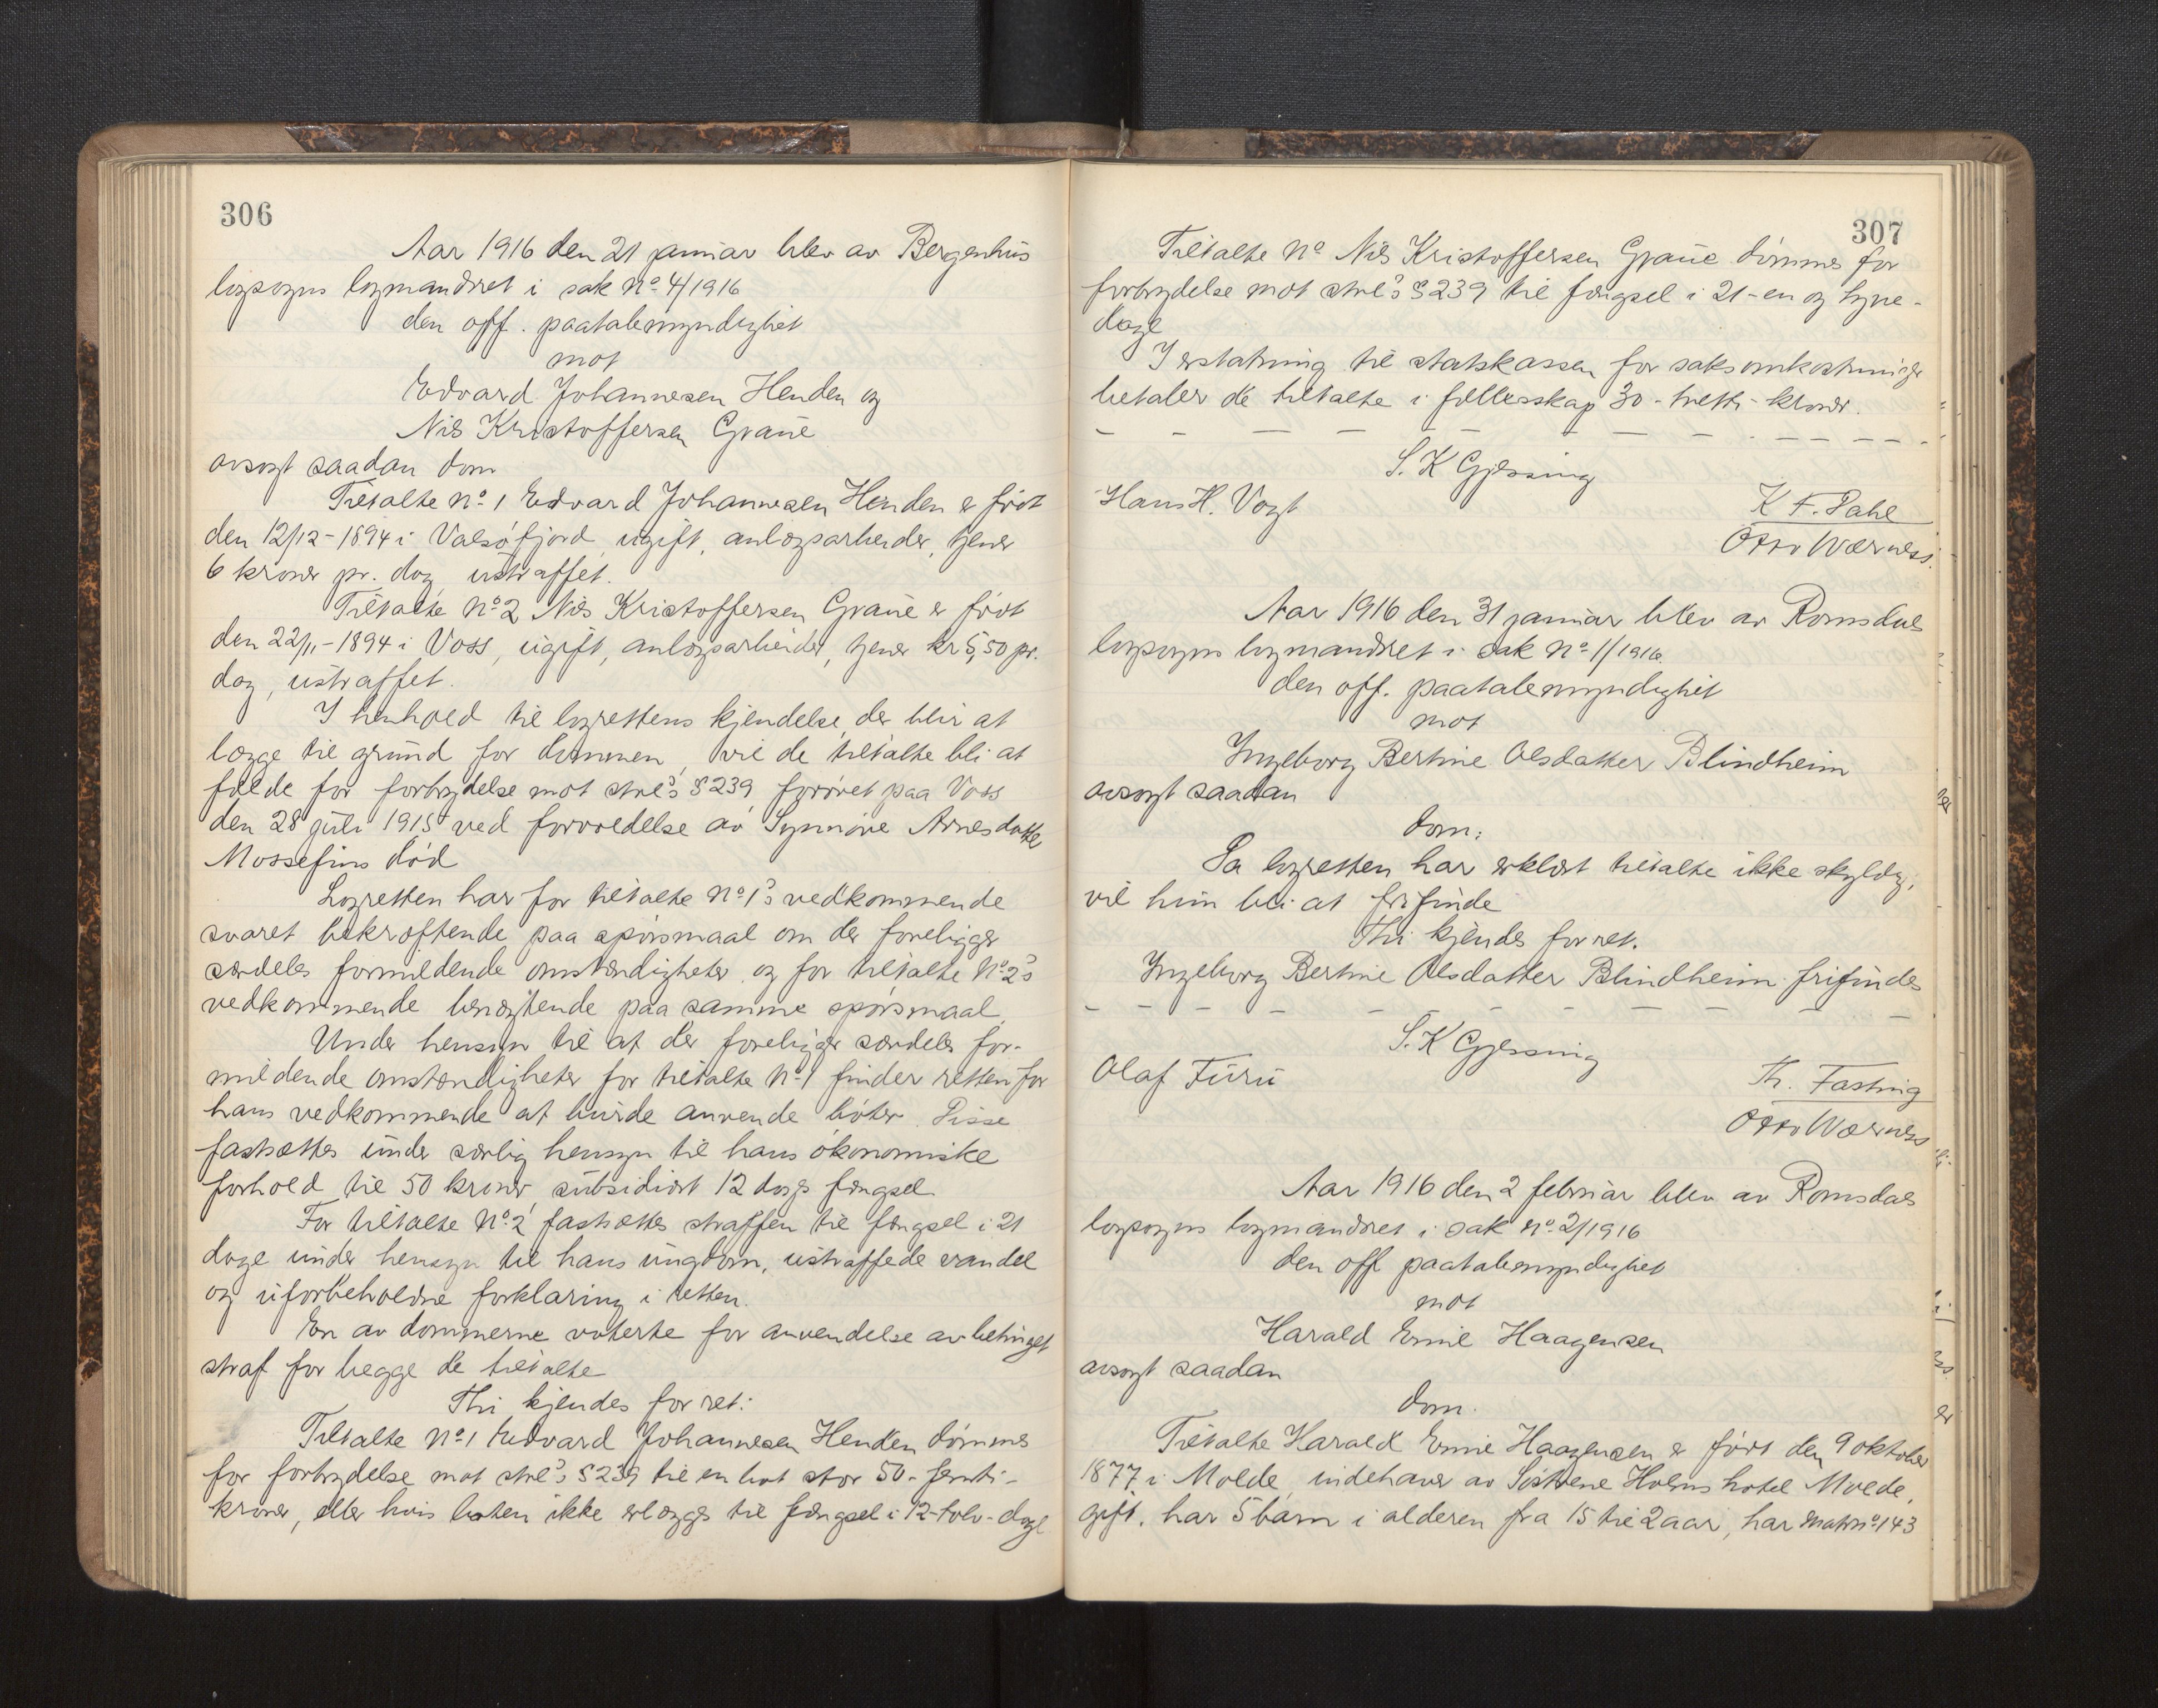 306
Aar 1916 den 21 januar blev av Bergenhus
lagsogns lagmandsret i sak No. 4/1916
den off. paatalemyndighet
mot
Edvard Johannesen Henden og
Nils Kristoffersen Graue
avsagt saadan dom
Tiltalte No. 1 Edvard Johannesen Henden er født
den 12/12-1894 i Valsøfjord, ugift, anlægsarbeider, tjener
6 kroner pr. dag ustraffet.
Tiltalte No. 2 Nils Kristoffersen Graue er født
den 22/11-1894 i Voss, ugift, anlægsarbeider, tjener kr 5,50 pr.
dag, ustraffet.
I henhold til lagrettens kjendelse, der blir at
lægge til grund for dommen, vil de tiltalte bli at
fælde for forbrydelse mot strl's § 239 forøvet paa Voss
den 28 juli 1915 ved forvoldelse av Synnøve Arnesdatter
Mossefins død
Lagretten har for tiltalte No. 1's vedkommende
svaret bekræftende paa spørsmaal om der foreligger
særdeles formildende omstændigheter og for tiltalte No. 2's
vedkommende benægtende paa samme spørsmaal.
Under hensyn til at der foreligger særdeles for-
mildende omstændigheter for tiltalte No. 1 finder retten for
hans vedkommende at burde anvende bøter. Disse
fastsættes under særlig hensyn til hans økonomiske
forhold til 50 kroner, subsidiært 12 dags fængsel.
For tiltalte No. 2 fastsættes straffen til fængsel i 21
dage under hensyn til hans ungdom, ustraffede vandel
og uforbeholdne forklaring i retten.
En av dommerne voterte for anvendelse av betinget
straf for begge de tiltalte
Thi kjendes for ret:
Tiltalte No. 1 Edvard Johannesen Henden dømmes
for forbrydelse mot strl's § 239 til en bot stor 50 - femti -
kroner, eller hvis boten ikke erlægges til fængsel i 12 - tolv - dage
307
Tiltalte No Nils Kristoffersen Graue dømmes for
forbrydelse mot strl's § 239 til fængsel i 21 - en og tyve -
dage
I erstatning til statskassen for saksomkostninger
betaler de tiltalte i fællesskap 30 - tretti - kroner.
S. K Gjessing
Hans H. Vogt
K F. Dahl
Otto Wærness.
Aar 1916 den 31 januar blev av Romsdals
lagsogns lagmandsret i sak No. 1/1916
den off. paatalemyndighet
mot
Ingeborg Bertine Olsdatter Blindheim
avsagt saadan
dom:
Da lagretten har erklært tiltalte ikke skyldig,
vil hun bli at frifinde
Thi kjendes for ret.
Ingeborg Bertine Olsdatter Blindheim frifindes
S. K Gjessing
Olaf Furu
Th. Fasting
Otto Wærness
Aar 1916 den 2 februar blev av Romsdals
lagsogns lagmandsret i sak No. 2/1916
den off paatalemyndighet
mot
Harald Emil Haagensen
avsagt saadan
dom.
Tiltalte Harald Emil Haagensen er født den 9 oktober
1877 i Molde, indehaver av Søstrene Holms hotel Molde,
gift, har 5 barn i alderen fra 15 til 2 aar, har matr no. 143